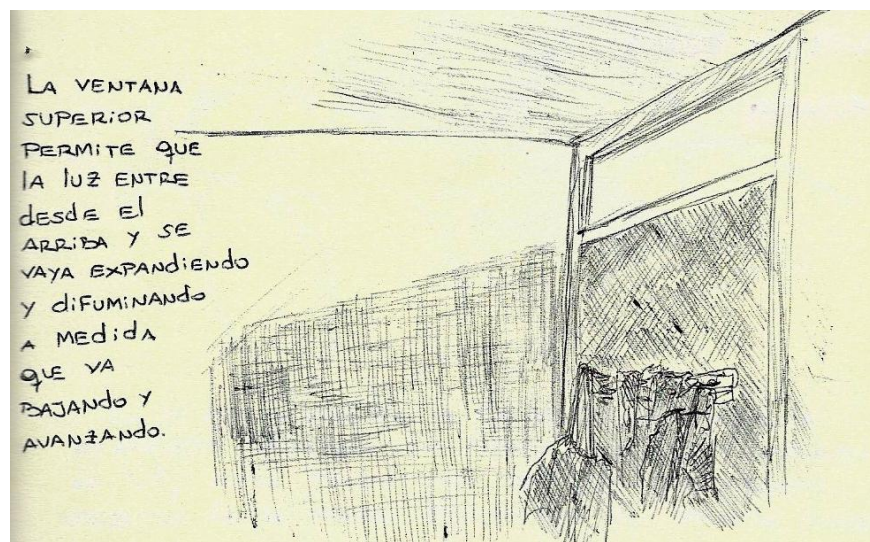 LA VENTANA
SUPERIOR
PERMITE QUE
LA LUZ ENTRE
desde el
ARRIBA Y SE
VAYA EXPANDIENDO
Y DIFUMINANDO
A MEDIDA
QUE VA
BAJANDO Y
AVANZANDO.